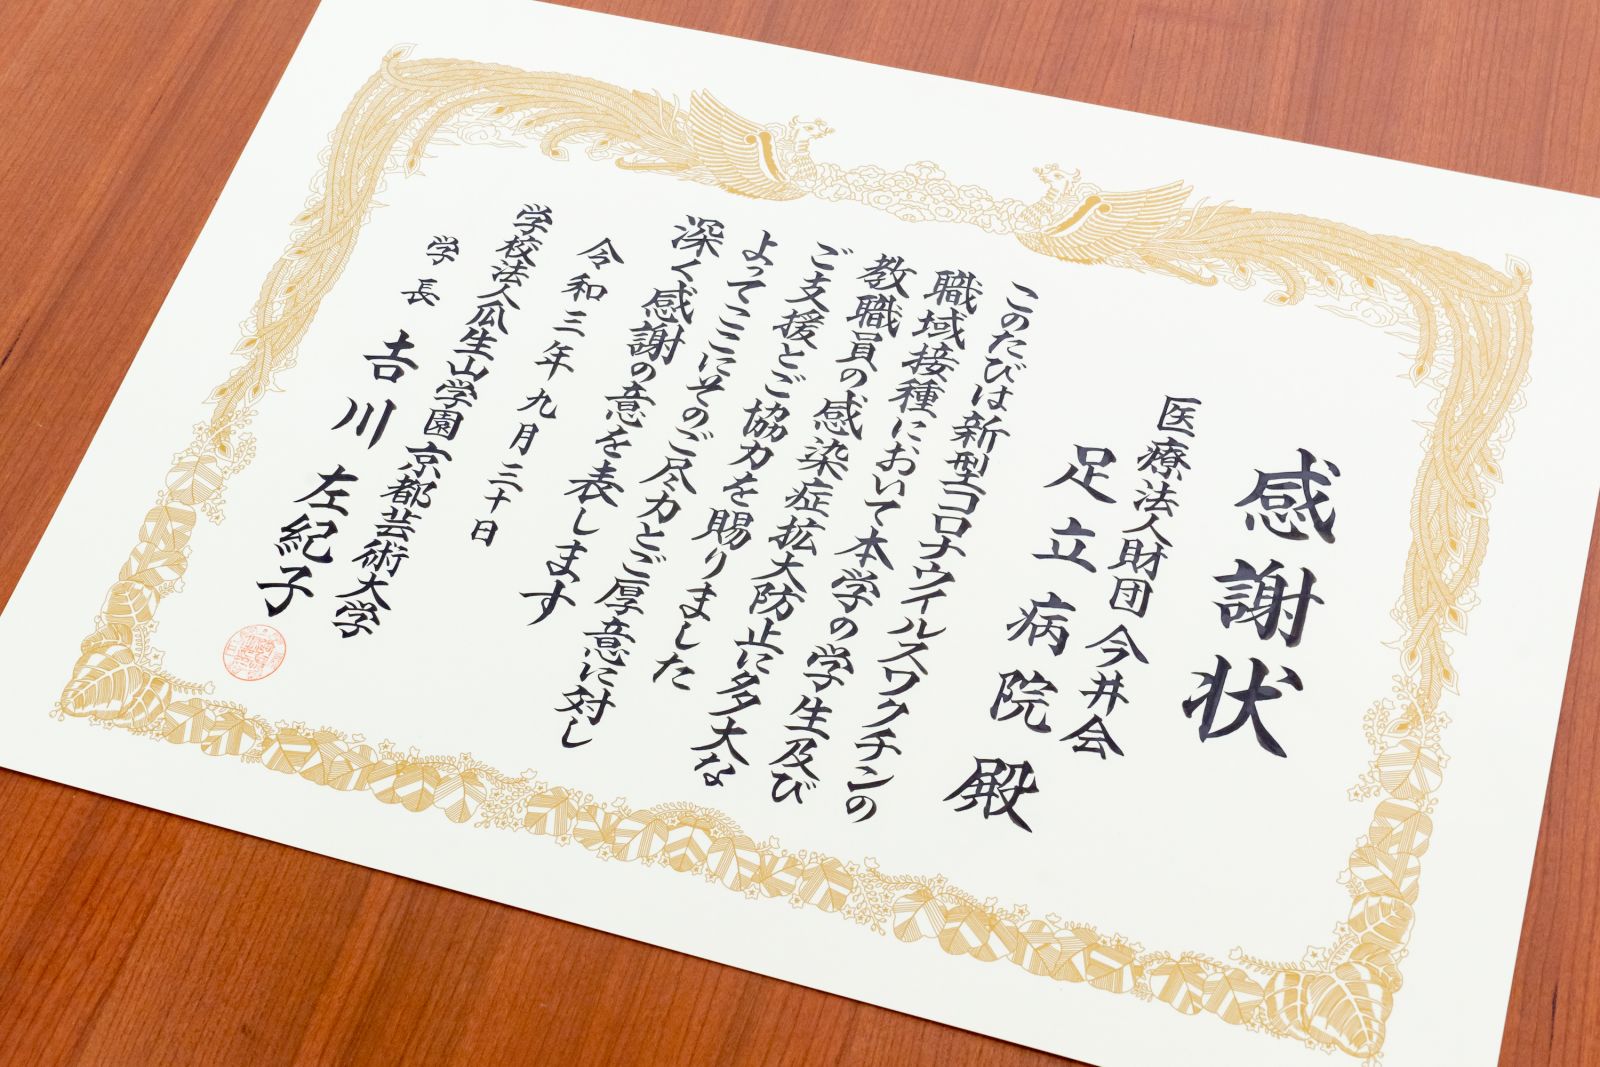 感謝状
医療法人財団今井会
足立病院殿
このたびは新型コロナウイルスワクチンの
職域接種において本学の学生及び
教職員の感染症拡大防止に多大な
ご支援とご協力を賜りました
よってここにそのご尽力とご厚意に対し
深く感謝の意を表します
令和三年九月三十日
学校法人瓜生山学園京都芸術大学
学長 吉川左紀子